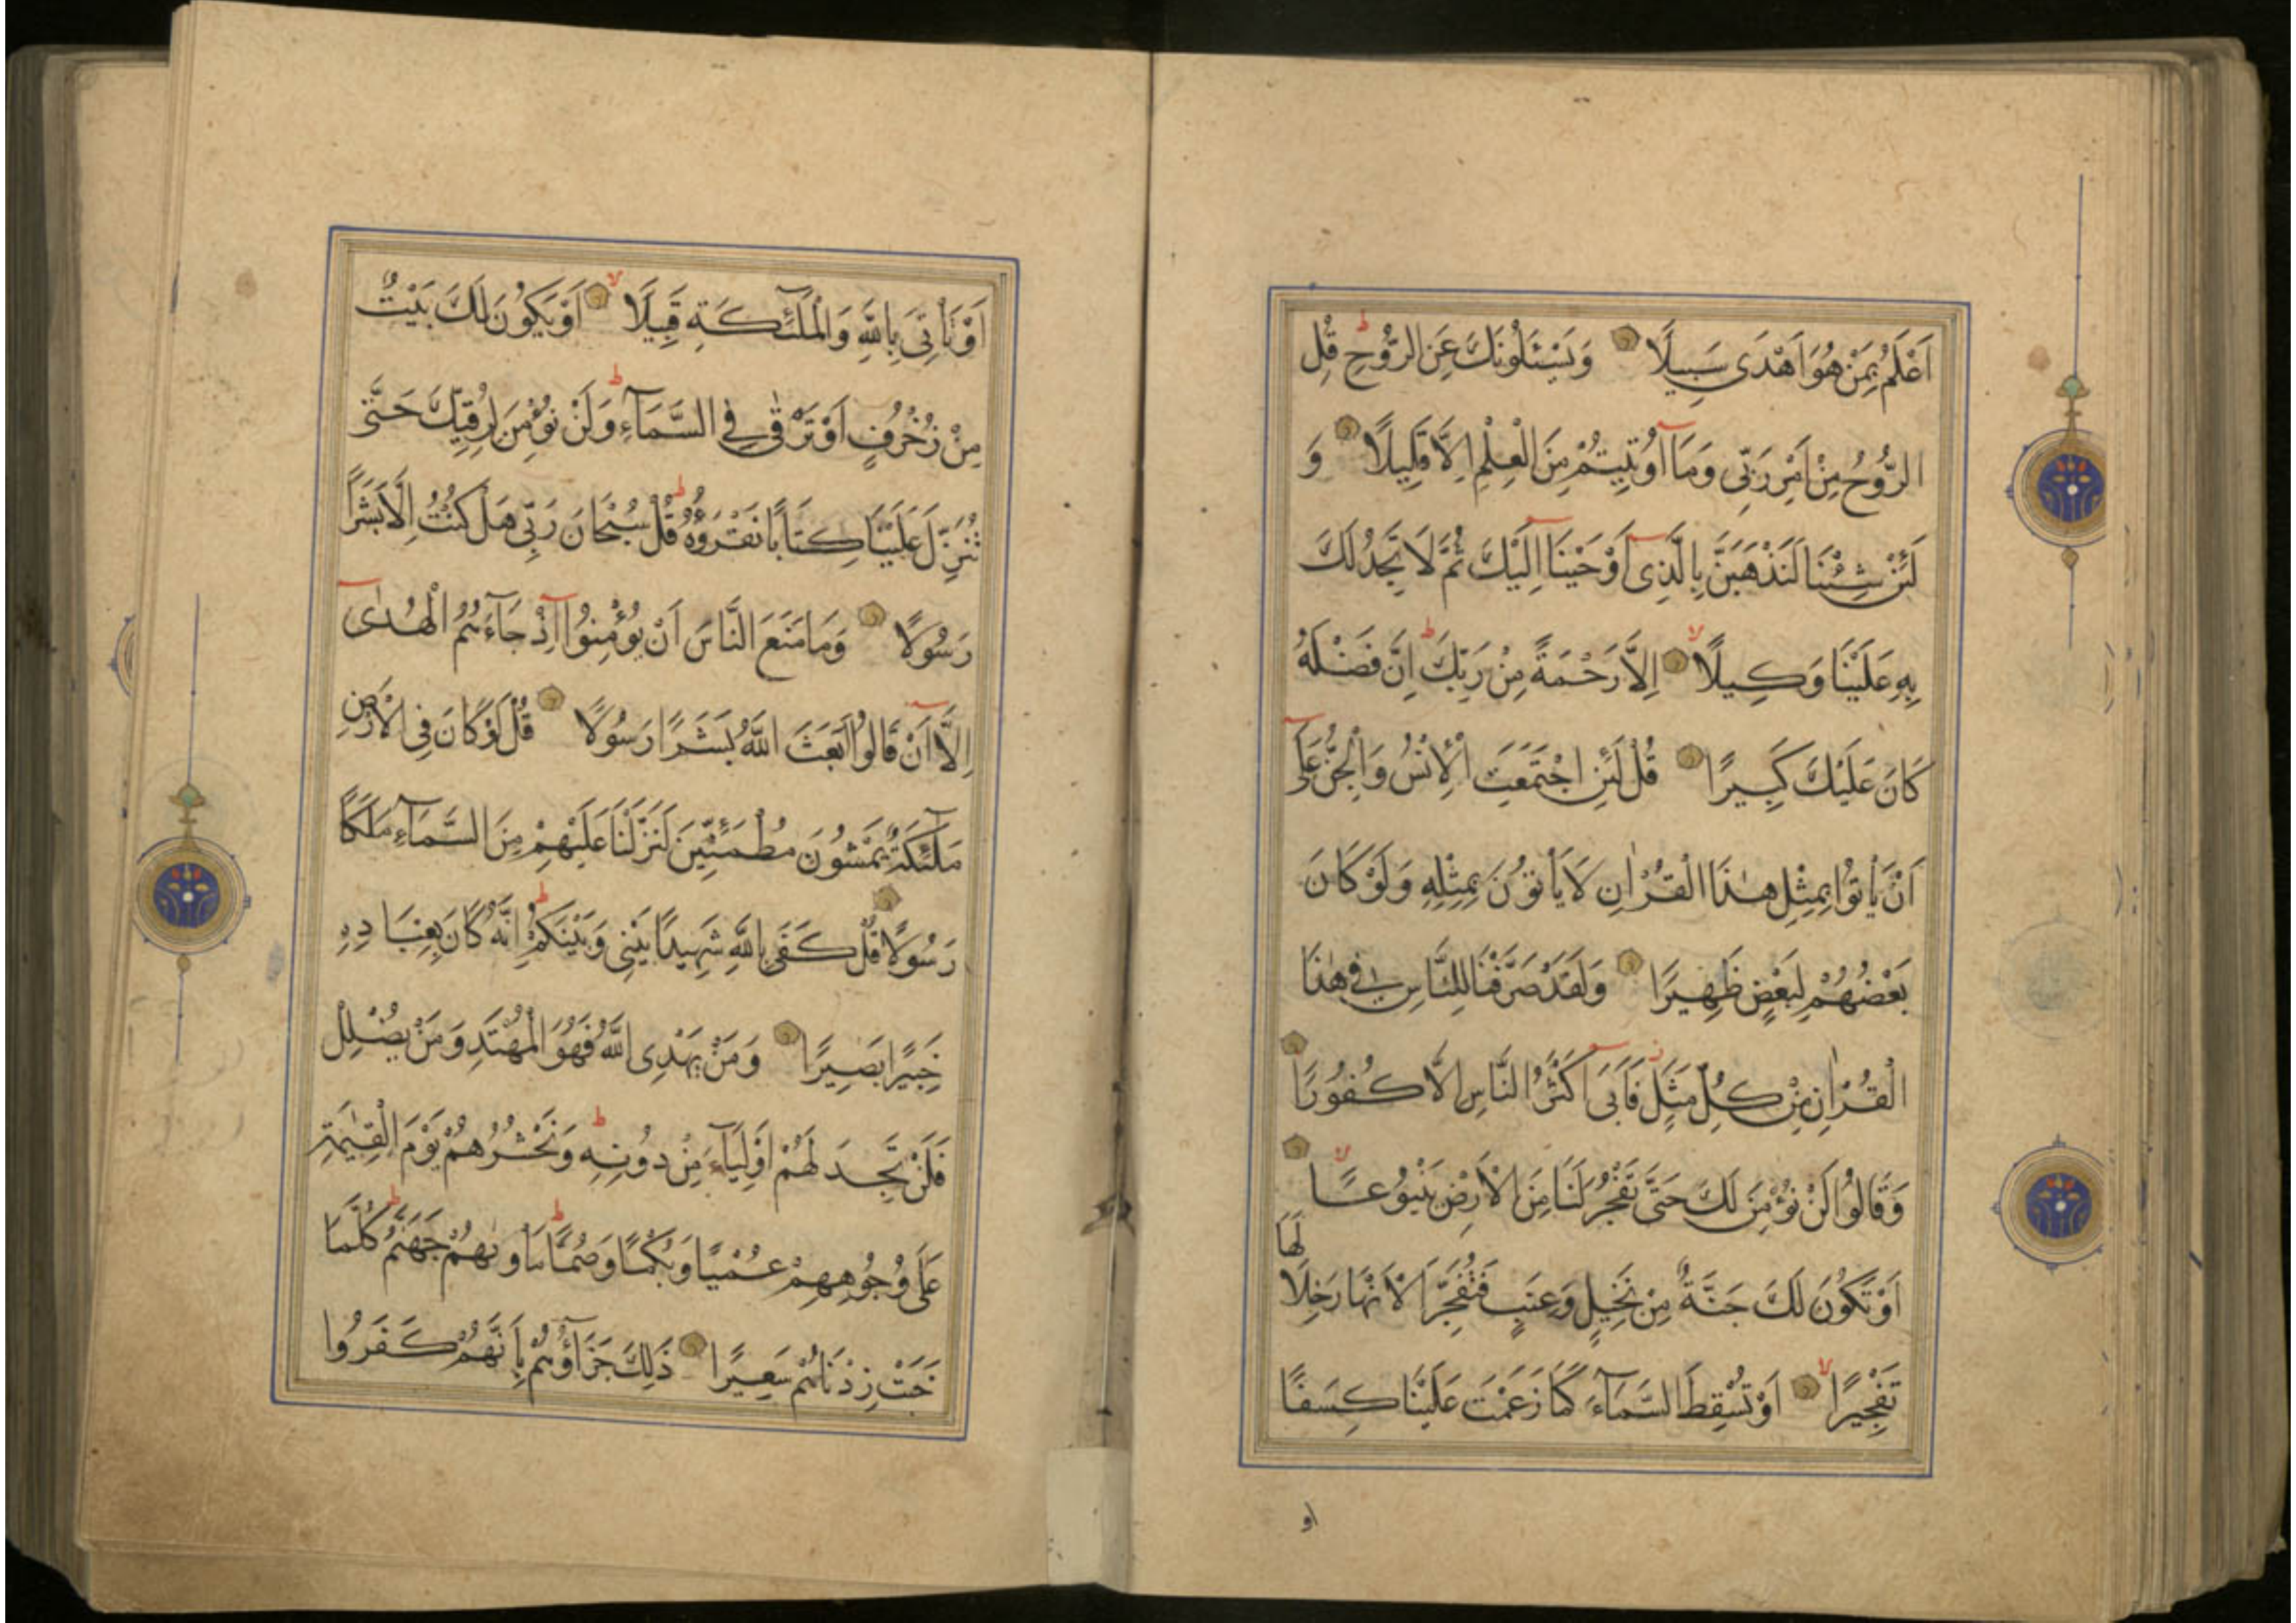 اَعْلَمُ بِمَنْ هُوَ اَهْدَى سَبِيلًا وَيَسْئَلُونَكَ عَنِ الرُّوحِ قُلِ
الرُّوحُ مِنْ اَمْرِ رَبِّى وَمَآ اُوتِيتُمْ مِنَ الْعِلْمِ اِلَّا قَلِيلًا وَ
لَئِنْ شِئْنَا لَنَذْهَبَنَّ بِالَّذِىٓ اَوْحَيْنَآ اِلَيْكَ ثُمَّ لَا تَجِدُ لَكَ
بِهِ عَلَيْنَا وَكِيلًا لا اِلَّا رَحْمَةً مِنْ رَبِّكَ ط اِنَّ فَضْلَهُ
كَانَ عَلَيْكَ كَبِيرًا قُلْ لَئِنِ اجْتَمَعَتِ الْاِنْسُ وَالْجِنُّ عَلَىٓ
اَنْ يَأْتُوا بِمِثْلِ هٰذَا الْقُرْاٰنِ لَا يَأْتُونَ بِمِثْلِهِ وَلَوْ كَانَ
بَعْضُهُمْ لِبَعْضٍ ظَهِيرًا وَلَقَدْ صَرَّفْنَا لِلنَّاسِ فِى هٰذَا
الْقُرْاٰنِ مِنْ كُلِّ مَثَلٍ ز فَاَبَىٓ اَكْثَرُ النَّاسِ اِلَّا كُفُورًا
وَقَالُوا لَنْ نُؤْمِنَ لَكَ حَتَّى تَفْجُرَ لَنَا مِنَ الْاَرْضِ يَنْبُوعًا لا
اَوْ تَكُونَ لَكَ جَنَّةٌ مِنْ نَخِيلٍ وَعِنَبٍ فَتُفَجِّرَ الْاَنْهَارَ خِلَالَهَا
تَفْجِيرًا لا اَوْ تُسْقِطَ السَّمَآءَ كَمَا زَعَمْتَ عَلَيْنَا كِسَفًا
او
اَوْ تَأْتِىَ بِاللّٰهِ وَالْمَلٰٓئِكَةِ قَبِيلًا لا اَوْ يَكُونَ لَكَ بَيْتٌ
مِنْ زُخْرُفٍ اَوْ تَرْقٰى فِى السَّمَآءِ ط وَلَنْ نُؤْمِنَ لِرُقِيِّكَ حَتَّى
تُنَزِّلَ عَلَيْنَا كِتَابًا نَقْرَؤُهُ ط قُلْ سُبْحَانَ رَبِّى هَلْ كُنْتُ اِلَّا بَشَرًا
رَسُولًا وَمَا مَنَعَ النَّاسَ اَنْ يُؤْمِنُوٓا اِذْ جَآءَهُمُ الْهُدٰىٓ
اِلَّآ اَنْ قَالُوا اَبَعَثَ اللّٰهُ بَشَرًا رَسُولًا قُلْ لَوْ كَانَ فِى الْاَرْضِ
مَلٰٓئِكَةٌ يَمْشُونَ مُطْمَئِنِّينَ لَنَزَّلْنَا عَلَيْهِمْ مِنَ السَّمَآءِ مَلَكًا
رَسُولًا قُلْ كَفَى بِاللّٰهِ شَهِيدًا بَيْنِى وَبَيْنَكُمْ ط اِنَّهُ كَانَ بِعِبَادِهِ
خَبِيرًا بَصِيرًا وَمَنْ يَهْدِى اللّٰهُ فَهُوَ الْمُهْتَدِ وَمَنْ يُضْلِلْ
فَلَنْ تَجِدَ لَهُمْ اَوْلِيَآءَ مِنْ دُونِهِ ط وَنَحْشُرُهُمْ يَوْمَ الْقِيٰمَةِ
عَلَى وُجُوهِهِمْ عُمْيًا وَبُكْمًا وَصُمًّا ط مَأْوٰىهُمْ جَهَنَّمُ ط كُلَّمَا
خَبَتْ زِدْنَاهُمْ سَعِيرًا ذٰلِكَ جَزَآؤُهُمْ بِاَنَّهُمْ كَفَرُوا